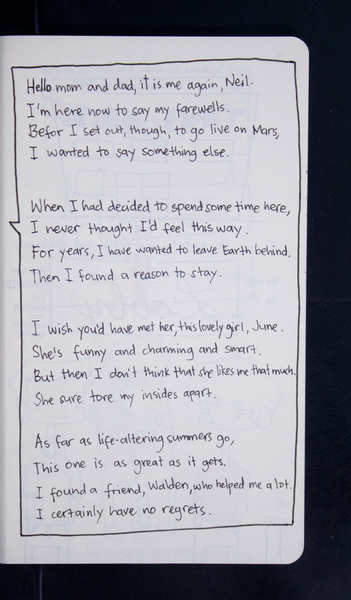 Hello mom and dad, it is me again, Neil.
I'm here now to say my farewells.
Befor I set out, though, to go live on Mars,
I wanted to say something else.
When I had decided to spend some time here,
I never thought I'd feel this way.
For years, I have wanted to leave Earth behind.
Then I found a reason to stay.
I wish you'd have met her, this lovely girl, June.
She's funny and charming and smart.
But then I don't think that she likes me that much.
She sure tore my insides apart.
As far as life-altering summers go,
This one is as great as it gets.
I found a friend, Walden, who helped me a lot.
I certainly have no regrets.